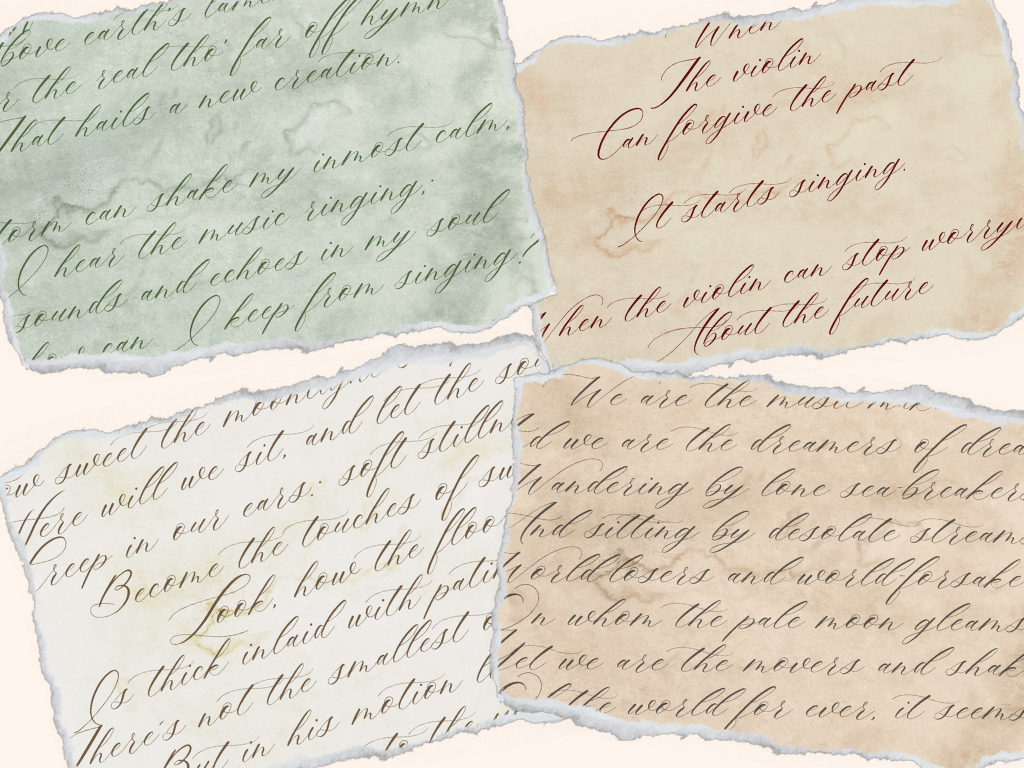 above earth's
r the real tho' far off hymn
That hails a new creation.
torm can shake my inmost calm,
I hear the music ringing;
sounds and echoes in my soul
I keep from singing!
love can
When
The violin
Can forgive the past
It starts singing.
When the violin can stop worryi
About the future
ow sweet the moonlight
Here will we sit, and let the sou
Creep in our ears: soft stilln
Become the touches of sw
Look, how the floor
Is thick inlaid with patin
There's not the smallest o
But in his motion l
to the
We are the music mak
d we are the dreamers of drea
Wandering by lone sea-breakers
And sitting by desolate streams
World-losers and world-forsake
On whom the pale moon gleams
Yet we are the movers and shak
Of the world for ever, it seems